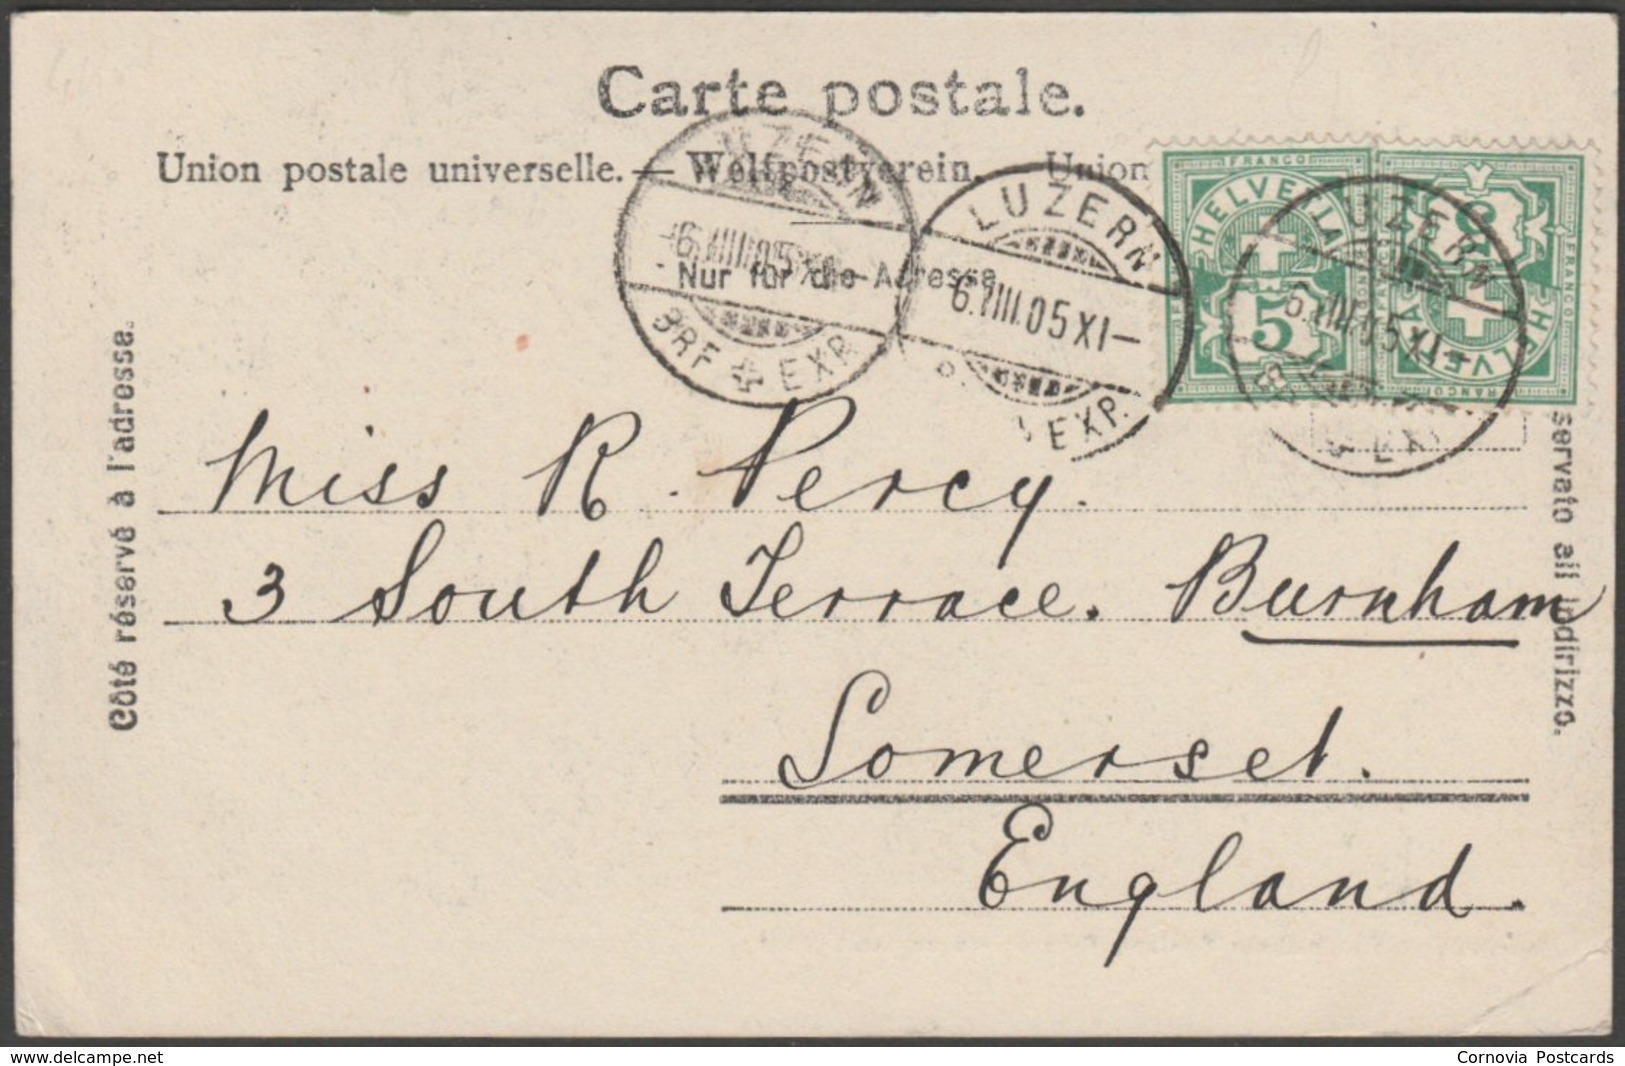 Carte postale.
Union postale universelle. — Weltpostverein. Union
Nur für die Adresse
LUZERN
6.VIII.05 XI–
BRF. EXP.
LUZERN
6.VIII.05 XI–
EXP.
LUZERN
6.VIII.05 XI–
FRANCO
HELVETIA
5
FRANCO
HELVETIA
5
FRANCO
Côté réservé à l'adresse.
servato all' indirizzo.
Miss R. Percy.
3 South Terrace. Burnham
Somerset.
England.
delcampe.net
Cornovia Postcards